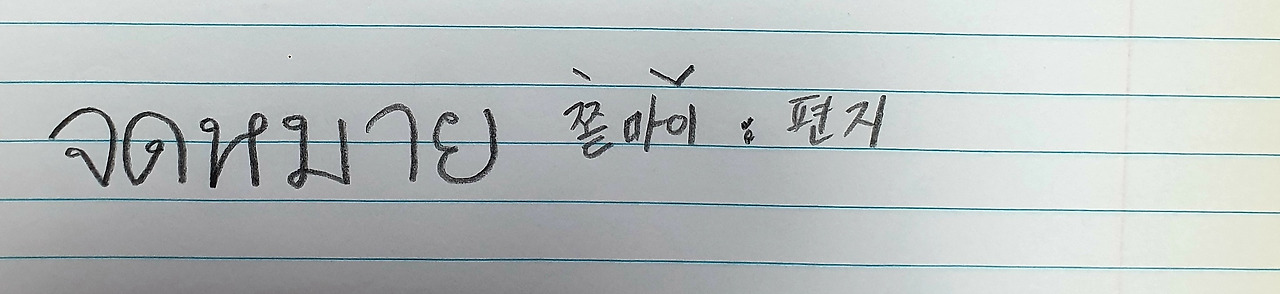 จดหมาย 쫃마이 : 편지